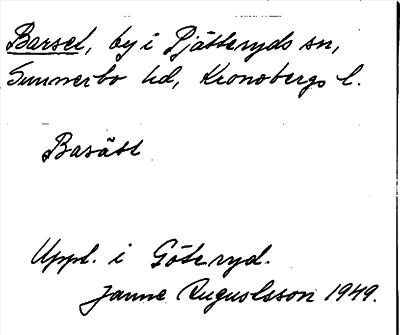 Barsel, by i Pjätteryds sn,
Sunnerbo hd, Kronobergs l.
Basätt
Uppl. i Göteryd.
Janne Augustsson 1949.